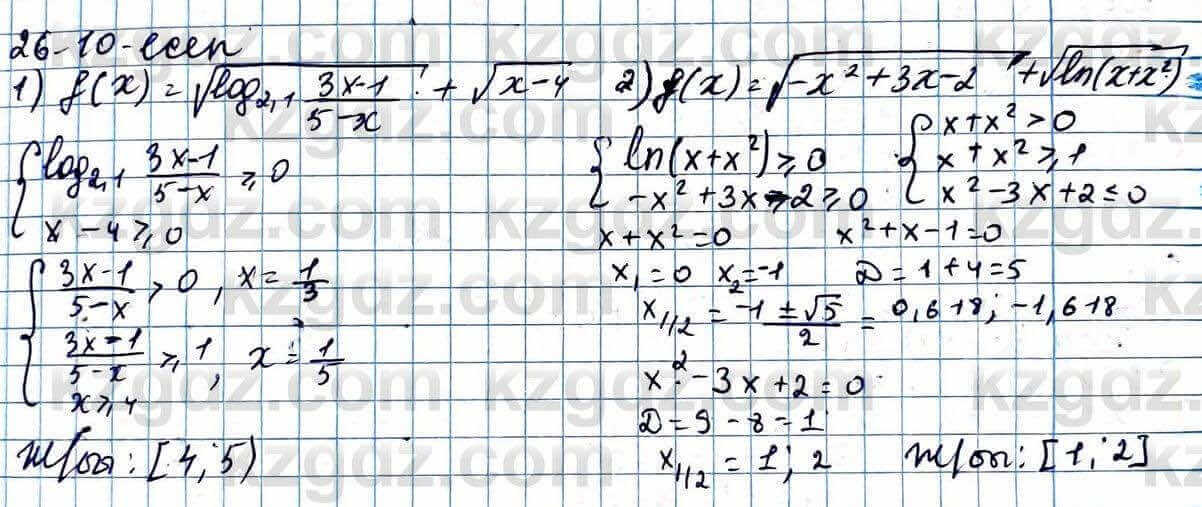 26-10-есеп
1) f(x) = √(log₂,₁ (3x-1)/(5-x)) + √(x-4)
{ log₂,₁ (3x-1)/(5-x) ⩾ 0
x - 4 ⩾ 0
{ (3x-1)/(5-x) > 0 , x = 1/3
(3x-1)/(5-x) ⩾ 1 , x = 1/5
x ⩾ 4
Ж/бы: [4; 5)
2) f(x) = √(-x² + 3x - 2) + √(ln(x+x²))
{ ln(x+x²) ⩾ 0
-x² + 3x - 2 ⩾ 0
{ x + x² > 0
x + x² ⩾ 1
x² - 3x + 2 ≤ 0
x + x² = 0
x₁ = 0 x₂ = -1
x² + x - 1 = 0
D = 1 + 4 = 5
x₁/₂ = (-1 ± √5)/2 = 0,618; -1,618
x² - 3x + 2 = 0
D = 9 - 8 = 1
x₁/₂ = 1; 2
Ж/бы: [1; 2]
kzgdz.com